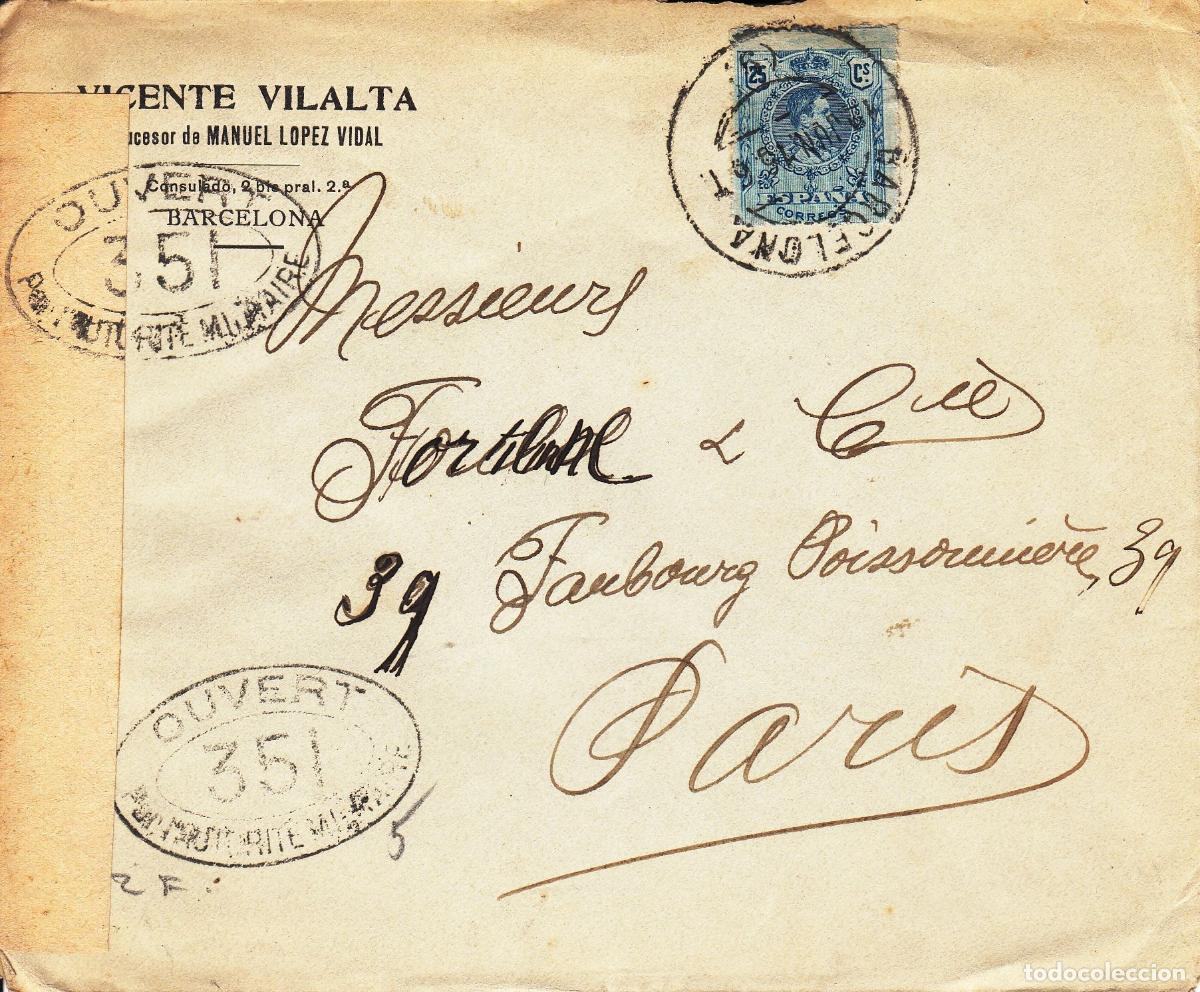 VICENTE VILALTA
ucesor de MANUEL LOPEZ VIDAL
Consulado, 2 bis pral. 2.ª
BARCELONA
OUVERT
351
PAR L'AUTORITÉ MILITAIRE
25 Cs
ESPAÑA
CORREOS
BARCELONA
Messieurs
& Cie
39 Faubourg Poissonnière, 39
Paris
OUVERT
351
PAR L'AUTORITÉ MILITAIRE
5
2 F.
todocoleccion